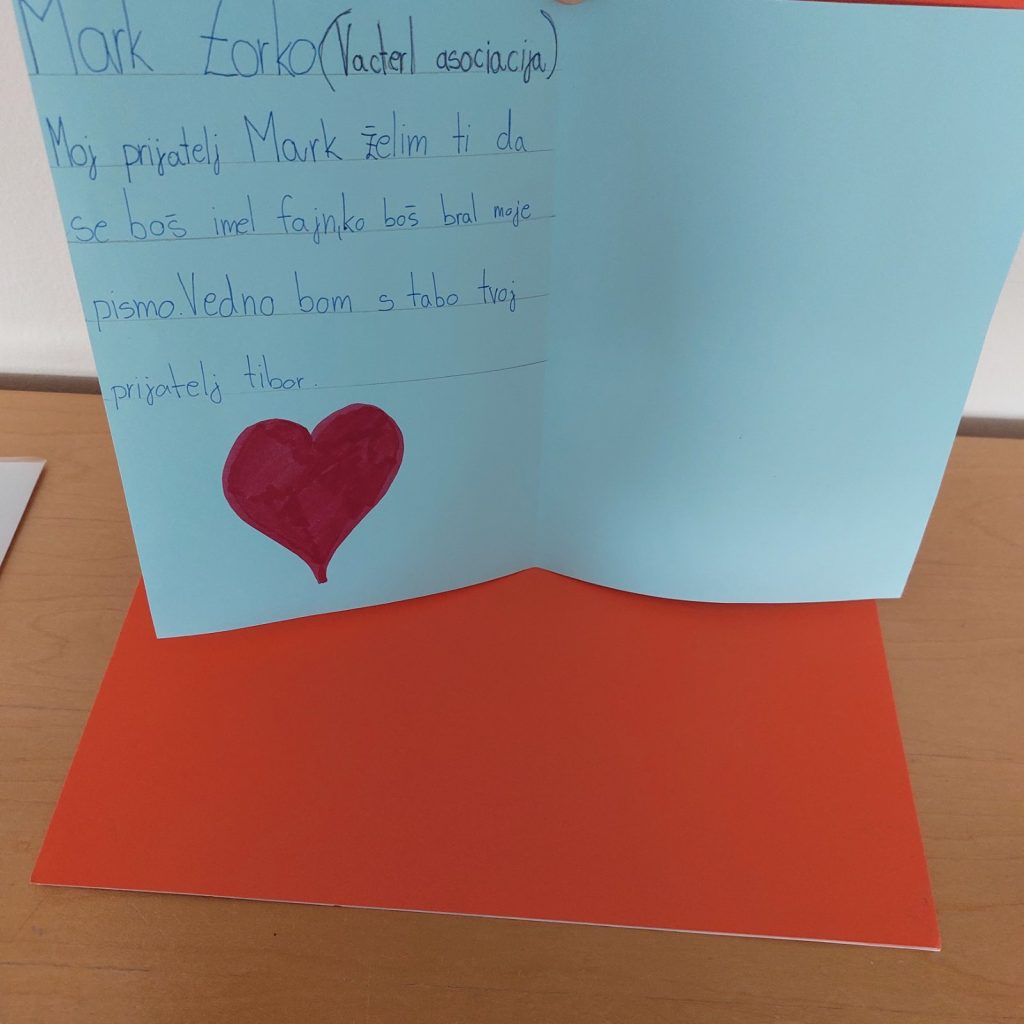 Mark Žorko (Vacterl asociacija)
Moj prijatelj Mark želim ti da
se boš imel fajn, ko boš bral moje
pismo. Vedno bom s tabo tvoj
prijatelj tibor.